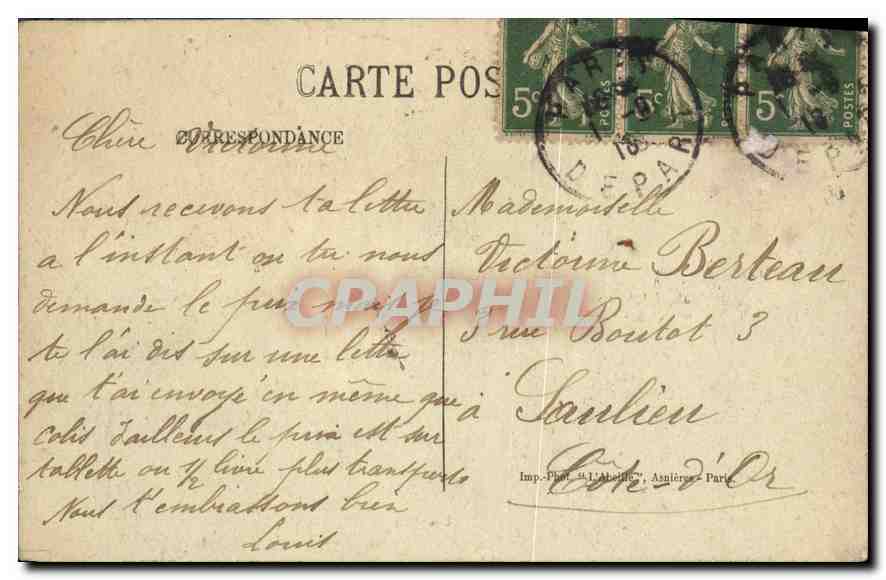 CARTE POS
5c
POSTES
5c
POSTES
5
POSTES
PARIS
18
DEPAR
CORRESPONDANCE
Chère Victorine
Nous recevons ta lettre
a l'instant ou tu nous
demande le prix mais je
te l'ai dis sur une lettre
que t'ai envoyé en même que
colis d'ailleurs le prix est sur
tablette ou 1/2 livre plus transports
Nous t'embrassons bien
Louis
Mademoiselle
Victorine Berteau
3 rue Boutot 3
à Saulieu
Côte-d'Or
Imp.-Phot. "L'Abeille", Asnières - Paris.
CPAPHIL